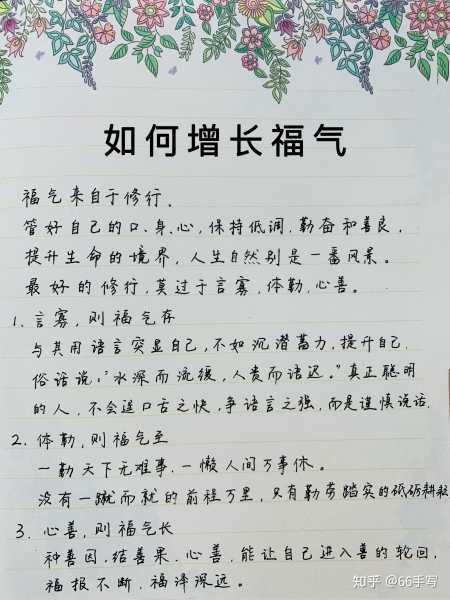 如何增长福气
福气来自于修行。
管好自己的口、身、心,保持低调、勤奋和善良,
提升生命的境界,人生自然别是一番风景。
最好的修行,莫过于言寡、体勤、心善。
1、言寡,则福气存
与其用语言突显自己,不如沉潜蓄力,提升自己,
俗话说:"水深而流缓,人贵而语迟。"真正聪明
的人,不会逞口舌之快,争语言之强,而是谨慎说话,
2、体勤,则福气至
一勤天下无难事,一懒人间万事休。
没有一蹴而就的前程万里,只有勤劳踏实的砥砺耕耘
3、心善,则福气长
种善因,结善果,心善,能让自己进入善的轮回,
福报不断,福泽深远。
知乎 @66手写